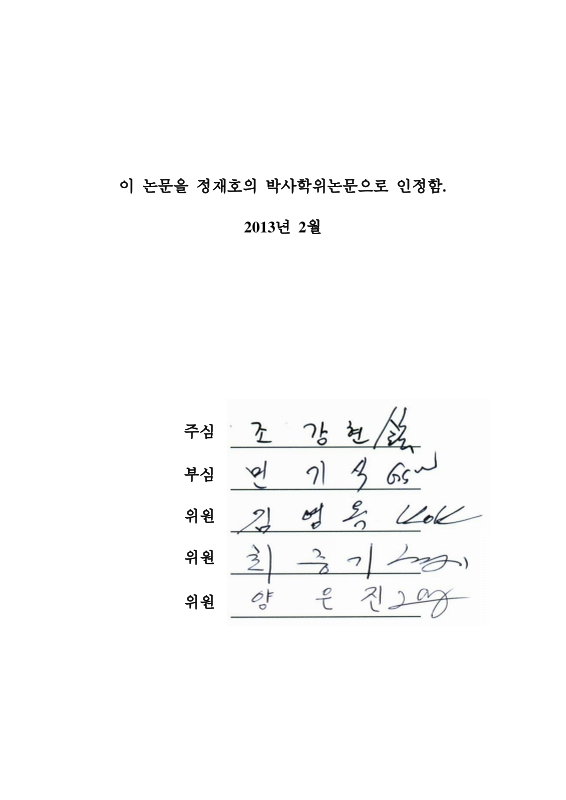 이 논문을 정재호의 박사학위논문으로 인정함.
2013년 2월
주심 조 강 현
부심 민 기 식
위원 김 영 옥
위원 최 중 기
위원 양 은 진